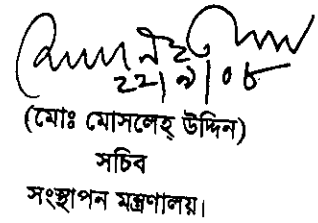 ২২/৯/০৮
(মোঃ মোসলেহ্ উদ্দিন)
সচিব
সংস্থাপন মন্ত্রণালয়।